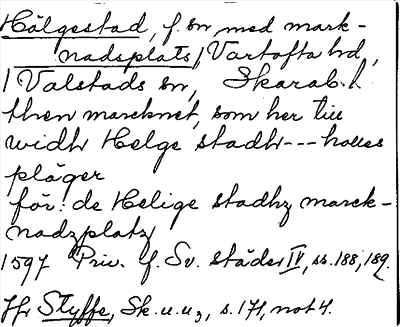 Hölgestad, f. sn, med mark-
nadsplats, Vartofta hd,
/ Valstads sn, Skarab. l.
then marcknet, som her till
widh Helge stadh --- holles
pläger
för: de Helige stadhz marck-
nadzplatz
1597 Priv. f. Sv. städer IV, ss. 188, 189.
Jfr Styffe, Sk. u. u. 3, s. 171, not 4.